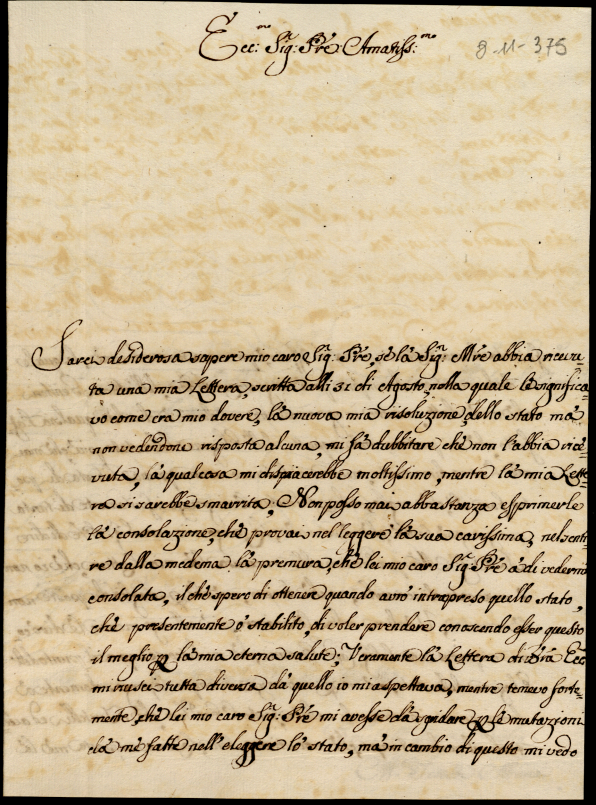 Ecc:mo Sig: Pre Amatiss:mo
9-11-375
Sarei desiderosa sapere mio caro Sig: Pre, se là Sig: Mre abbia riceuu-
ta una mia Lettera, scritta alli 31 di Agosto, nella quale le significa-
vo come era mio dovere, là nuova mia risoluzione dello stato mà
non vedendone risposta alcuna, mi fà dubbitare che non l'abbia rice-
vuta, là qual cosa mi dispiacerebbe moltissimo, mentre là mia Lette-
ra si sarebbe smarrita; Non posso mai abbastanza esprimerle
là consolazione, chè provai nel leggere là sua carissima, nel senti-
re dalla medema là premura, chè lei mio caro Sig: Pre à di vedermi
consolata, il chè spero di ottenere quando avrò intrapreso quello stato,
chè presentemente ò stabilito, di voler prendere conoscendo esser questo
il meglio p là mia eterna salute; Veramente là Lettera di Ecc:
mi riuscì tutta diversa dà quello io mi aspettava, mentre tenevo forte-
mente, chè lei mio caro Sig: Pre mi avesse dà sgridare p le mutazioni
dà mè fatte nell'eleggere lò stato, mà in cambio di questo mi vedo